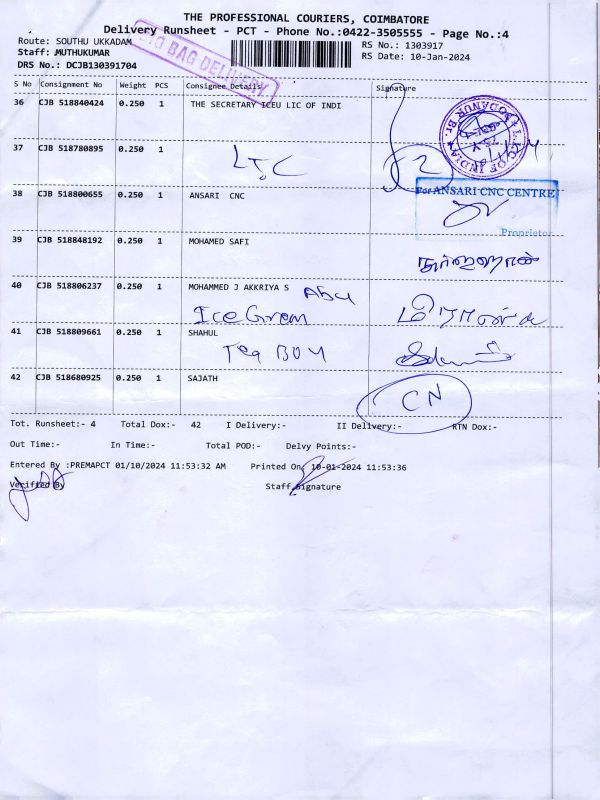 THE PROFESSIONAL COURIERS, COIMBATORE
Delivery Runsheet - PCT - Phone No.:0422-3505555 - Page No.:4
Route: SOUTHU UKKADAM
RS No.: 1303917
Staff: JMUTHUKUMAR
RS Date: 10-Jan-2024
DRS No.: DCJB130391704
BAG DELIVERY
S No Consignment No Weight PCS Consignee Details Signature
36 CJB 518840424 0.250 1 THE SECRETARY ICEU LIC OF INDI
37 CJB 518780895 0.250 1
L.I.C. OF INDIA
38 CJB 518800655 0.250 1 ANSARI CNC
For ANSARI CNC CENTRE
Proprietor
39 CJB 518848192 0.250 1 MOHAMED SAFI
40 CJB 518806237 0.250 1 MOHAMMED J AKKRIYA S
Abu
Ice Cream
41 CJB 518809661 0.250 1 SHAHUL
Tea Boy
42 CJB 518680925 0.250 1 SAJATH
CN
Tot. Runsheet:- 4 Total Dox:- 42 I Delivery:- II Delivery:- RTN Dox:-
Out Time:- In Time:- Total POD:- Delvy Points:-
Entered By :PREMAPCT 01/10/2024 11:53:32 AM Printed On: 10-01-2024 11:53:36
Verified By Staff Signature